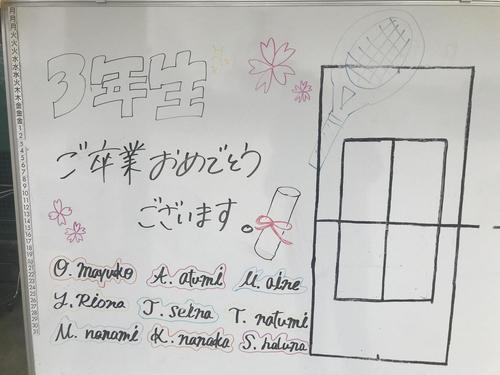 3年生
ご卒業おめでとう
ございます。
O. mayuko A. atumi M. aine
Y. Riona J. sekna T. natumi
M. nanami K. nanaka S. haluna